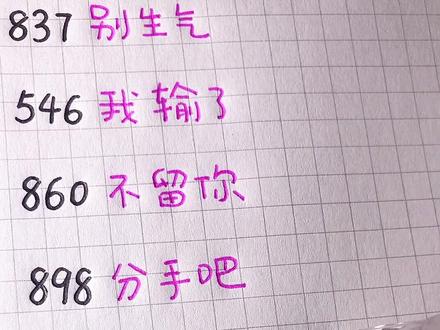 837 别生气
546 我输了
860 不留你
898 分手吧